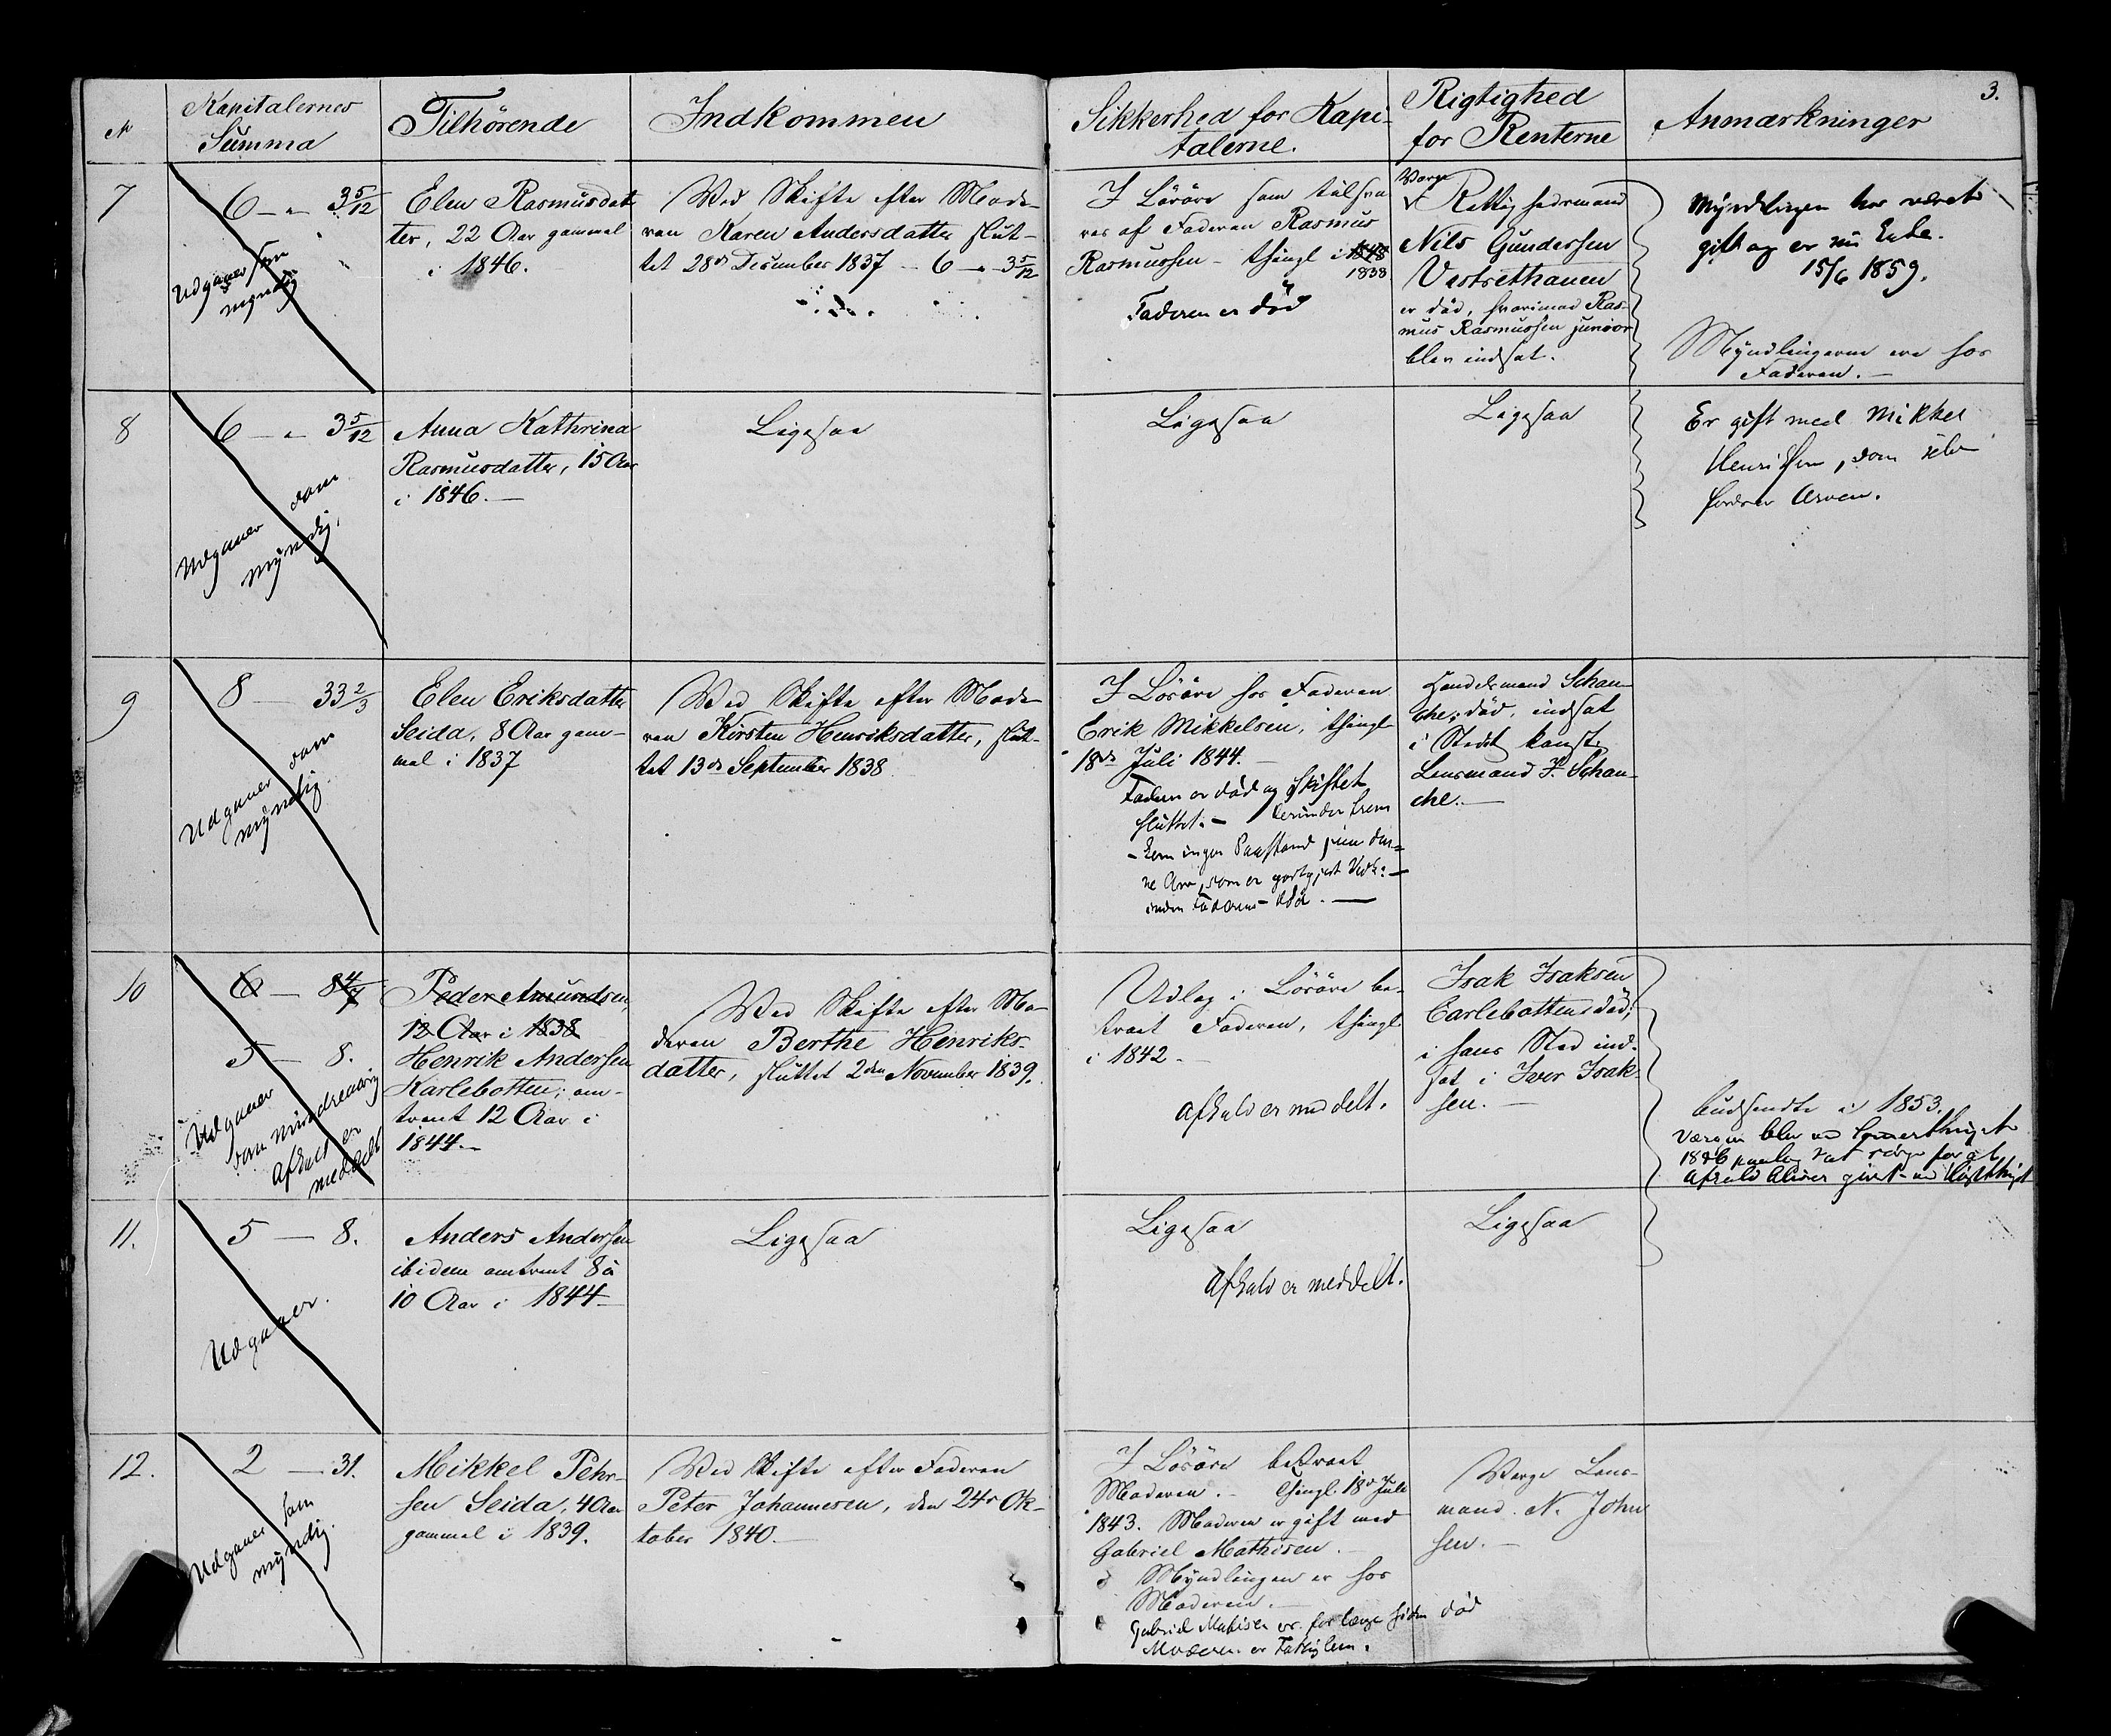 3.
№
Kapitalernes
Summa
Tilhørende
Indkommen
Sikkerhed for Kapi-
talerne.
Rigtighed
for Renterne
Anmærkninger
7
6 - " 3 5/12
Udgaaer som
myndig
Elen Rasmusdat
ter, 22 Aar gammel
i 1846.
Ved Skifte efter Mode-
ren Karen Andersdatter slut-
tet 28de December 1837 - 6 - " 3 5/12
I Lösöre som tilsva
res af Faderen Rasmus
Rasmussen - thingl i 1848
1838
Faderen er död
Verge
Rettighedsmand
Nils Gundersen
Vestrethanen
er död, hvorimod Ras-
mus Rasmussen junior
blev indsat.
Myndlingen har været
gift og er nu Enke.
15/6 1859.
Myndlingerne ere hos
Faderen. -
8
6 - " 3 5/12
Udgaaer som
myndig.
Anna Kathrina
Rasmusdatter, 15 Aar
i 1846. -
Ligesaa
Ligesaa
Ligesaa
Er gift med Mikkel
Henriksen, som selv
fordrer Arven.
9
8 - 33 2/3
Udgaaer som
myndig.
Elen Eriksdatter
Seida, 8 Aar gam-
mel i 1837
Ved Skifte efter Mode-
ren Kirsten Henriksdatter, slut-
tet 13de September 1838
I Lösöre hos Faderen
Erik Mikkelsen, thingl
18de Juli 1844. -
Faderen er död og Skiftet
sluttet. - Herunder frem
- kom ingen Paastand
ne Arv, som er
inden Faderens Död. -
Handelsmand Schan-
che, död, indsat
i Stedet const.
Lensmand Schan-
che. -
10
6 - 8 4/7
5 - 8.
Udgaaer
som mindreaarig
Afkald er
meddelt
Peder Amundsen,
12 Aar i 1838
Henrik Andersen
Karlebotten; om-
trent 12 Aar i
1844. -
Ved Skifte efter Mo-
deren Berthe Henriks-
datter, sluttet 2den November 1839.
Udlag i Lösöre be-
troet Faderen, thingl
i 1842 -
Afkald er meddelt.
Isak Isaksen
Carlebotten död;
i hans Sted ind-
sat i Iver Isak-
sen. -
i 1853.
Værgen blev ved
at sörge for at
Afkald bliver givet ved Hösttinget
11.
5 - 8.
Udgaaer.
Anders Andersen
ibidem omtrent 8 à
10 Aar i 1844 -
Ligesaa
Ligesaa
Afkald er meddelt.
Ligesaa
12.
2 - 31.
Udgaaer som
myndig.
Mikkel Pehr-
sen Seida, 4 Aar
gammel i 1839.
Ved Skifte efter Faderen
Peter Johannesen, den 24de Ok-
tober 1840. -
I Lösöre betroet
Moderen. - thingl. 18de Juli
1843. Moderen er gift med
Gabriel Mathisen. -
Myndlingen er hos
Moderen. -
Gabriel Mathisen er for længe siden död
Moderen er Fattiglem.
Verge Lens-
mand N. John
sen. -